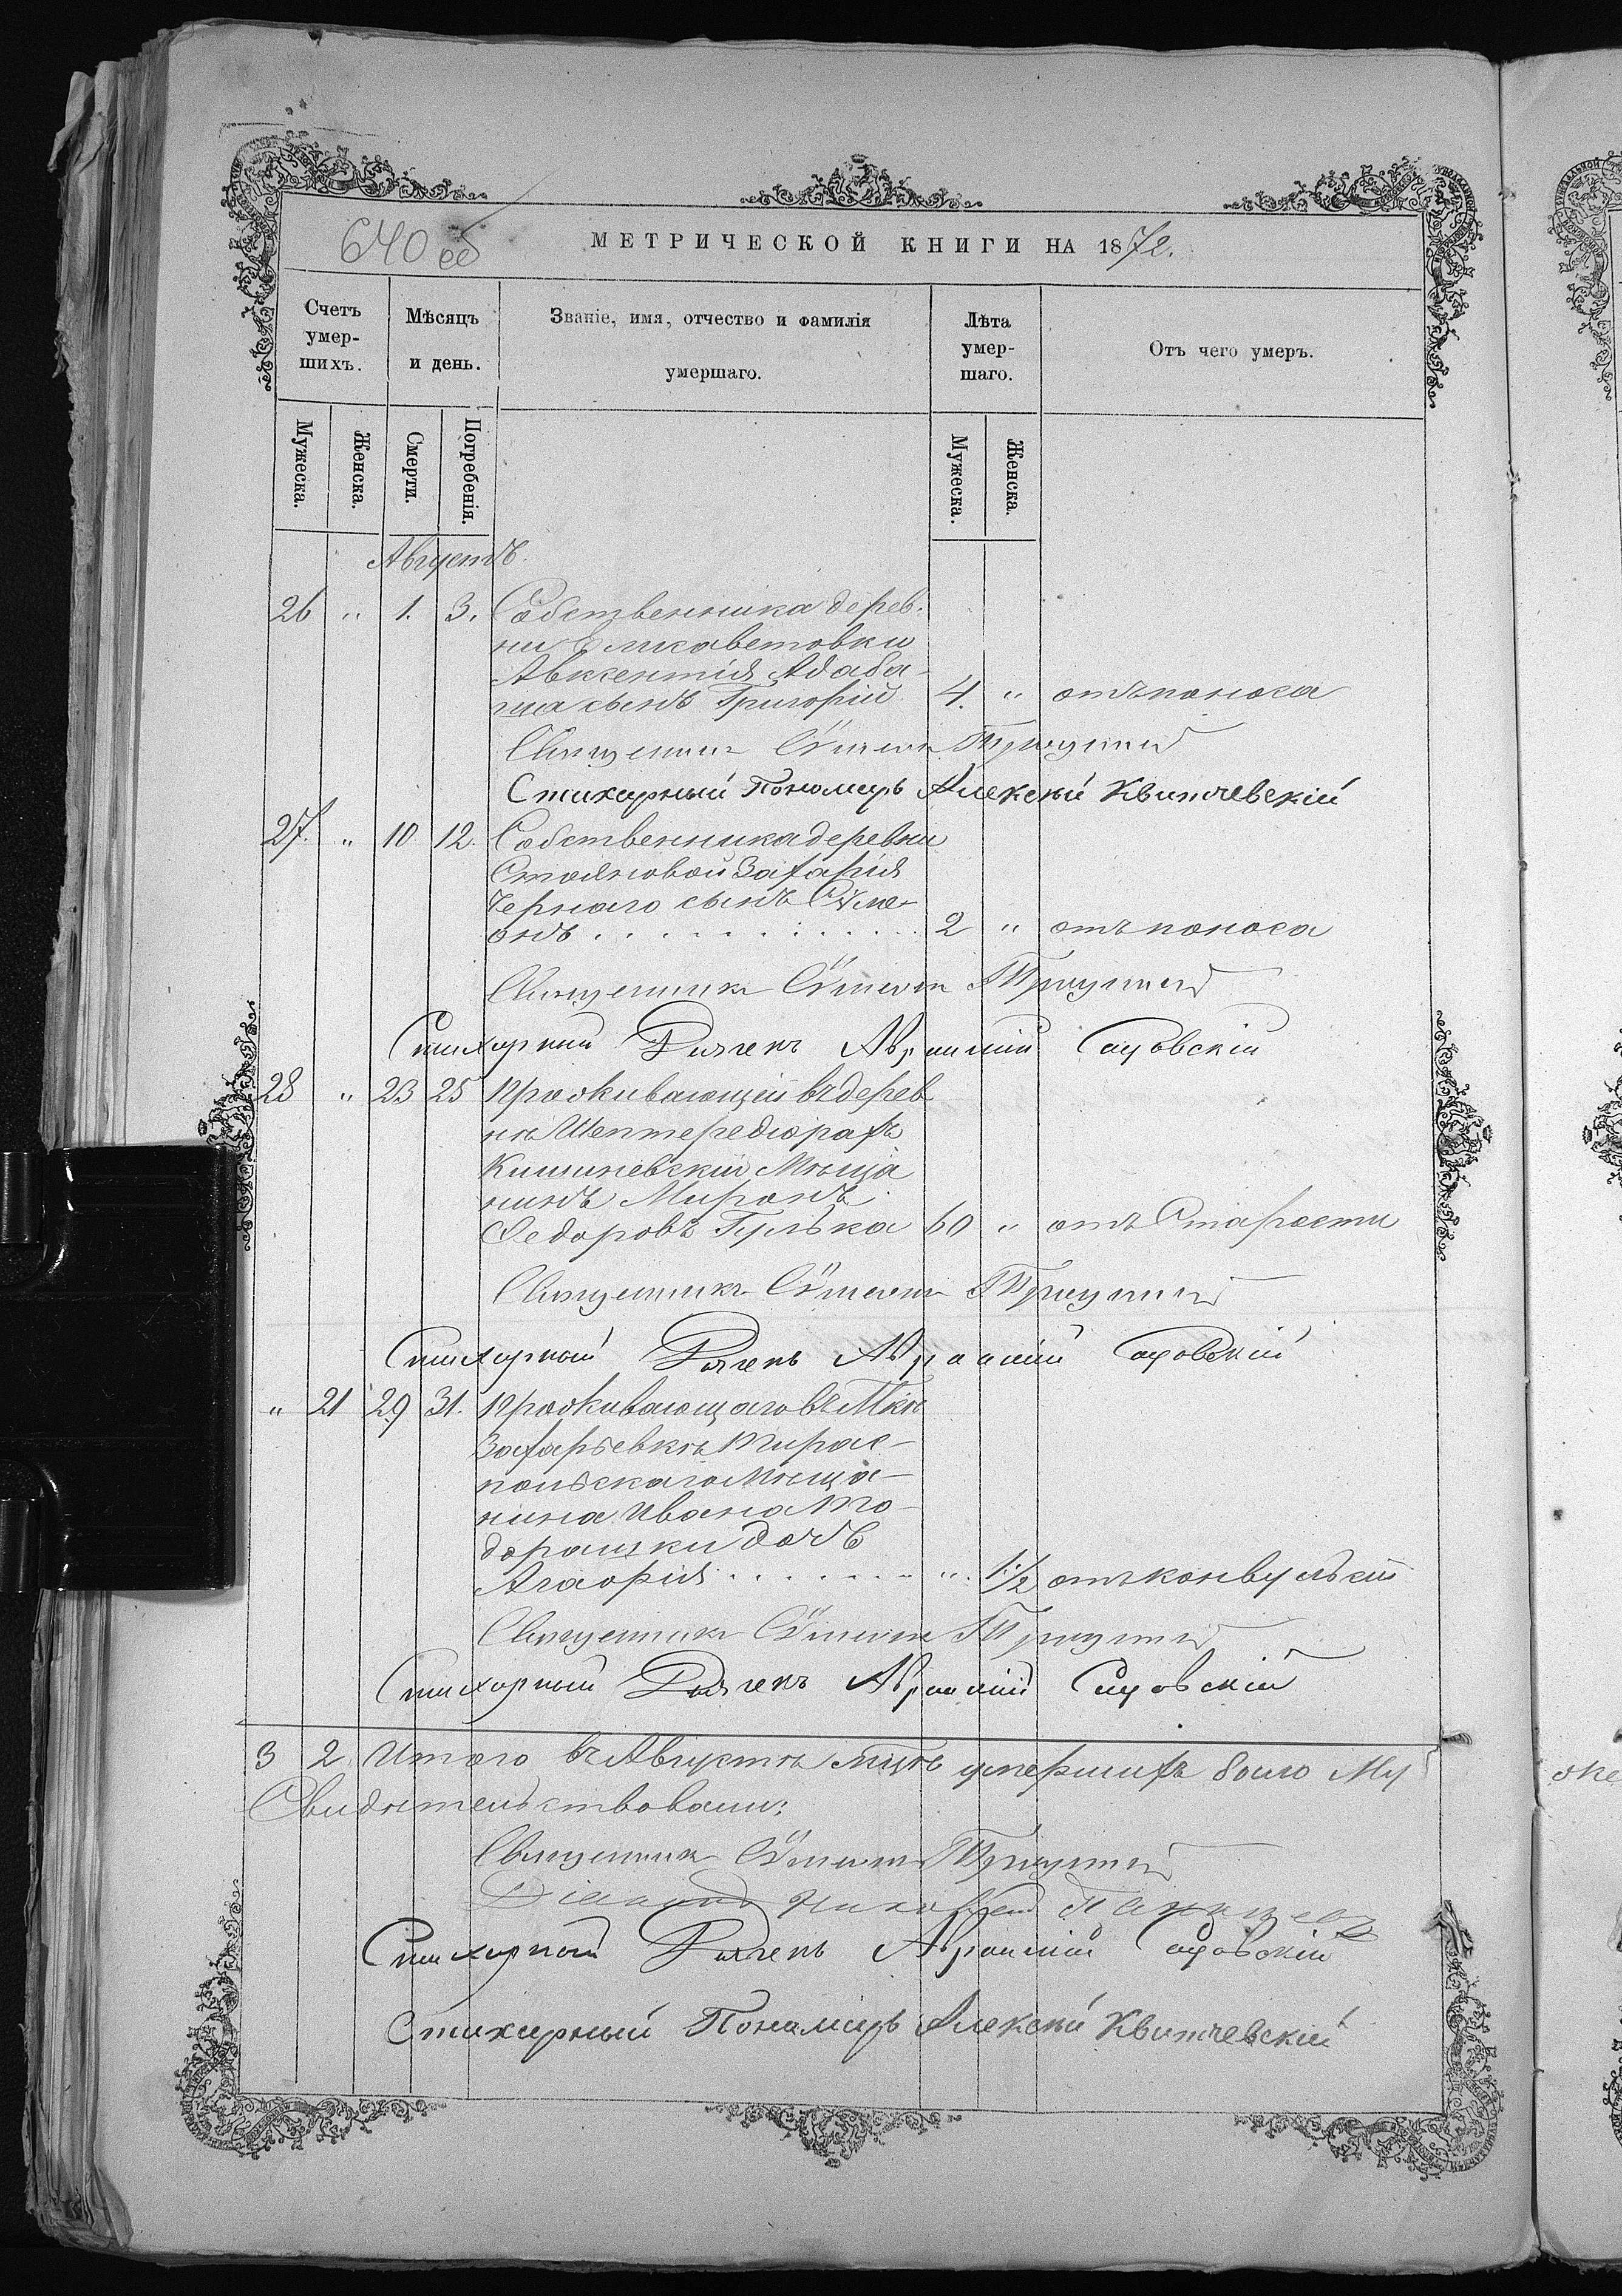 640 об
МЕТРИЧЕСКОЙ КНИГИ НА 1872.
Счетъ умер-шихъ.
Мѣсяцъ и день.
Званіе, имя, отчество и фамилія умершаго.
Лѣта умер-шаго.
Отъ чего умеръ.
Мужеска.
Женска.
Смерти.
Погребенія.
Мужеска.
Женска.
Августъ.
26 " 1. 3. Собственника дерев-
ни Елисаветовки
Авксентія Адаба-
ша сынъ Григорій 4. " отъ поноса
Священникъ Симеонъ
Стихарный Пономарь Алексѣй Квитчевскій
27. " 10 12. Собственника деревни
Стояновой Захарія
Чернаго сынъ Симе-
онъ . . . . . . . . . . . 2 " отъ поноса
Священникъ Симеонъ
Стихарный Дьячекъ Авраамій Садовскій
28 " 23 25 Проживающій въ дерев
нѣ Шептередіорахъ
Кишиневскій Мѣща
нинъ Миронъ
Федоровъ Гулька 60 " отъ Старости
Священникъ Симеонъ
Стихарный Дьячекъ Авраамій Садовскій
" 21 29 31. Проживающаго въ Мкѣ
Захарьевкѣ Тирас-
польскаго Мѣща-
нина Ивана То-
дорашки дочь
Агафія . . . . . . . " 1 1/2 отъ конвульсій
Священникъ Симеонъ
Стихарный Дьячекъ Авраамій Садовскій
3 2 Итого въ Августѣ мцѣ умершихъ было Му
Свидѣтельствовали:
Священникъ Симеонъ
Діаконъ
Стихарный Дьячекъ Авраамій Садовскій
Стихарный Пономарь Алексѣй Квитчевскій
же